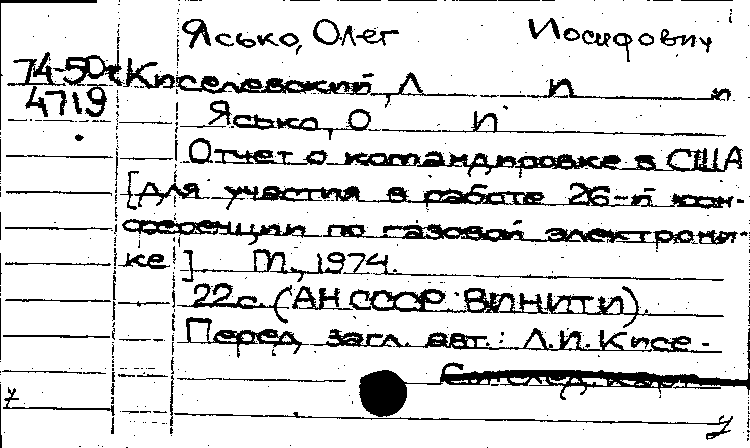 Ясько, Олег Иосифович
74-50
4719
Киселевский, Л И и
Ясько, О И
Отчет о командировке в США
[для участия в работе 26-й кон-
ференции по газовой электрони-
ке]. М., 1974.
22с. (АН СССР. ВИНИТИ).
Перед загл. авт.: Л.И. Кисе-
См. след. карт.